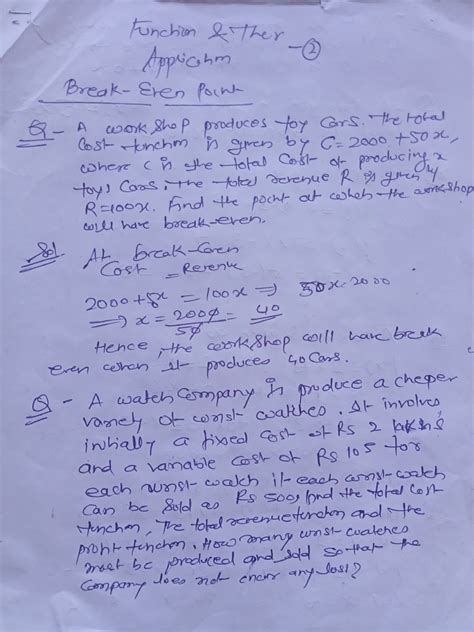 Function & Ther
Applicatim -②
Break-Even Point
Q - A workshop produces toy cars. The total
Cost function is given by C = 2000 + 50x,
where C is the total Cost of producing x
toys Cars. The total revenue R is given by
R=100x. Find the point at which the workshop
will have break-even.
Sol. At break-even
Cost = Revenue
2000 + 5x = 100x ⇒ 50x = 2000
⇒ x = 2000/50 = 40
Hence, the workshop will have break
even when it produces 40 Cars.
Q - A watch Company is produce a cheper
variety of wrist watches. It involves
initially a fixed cost of Rs 2 lakhs
and a variable cost of Rs 105 for
each wrist watch if each wrist-watch
can be sold as Rs 500, find the total cost
function, The total revenue function and the
profit function. How many wrist watches
must be produced and sold so that the
Company does not encur any loss?